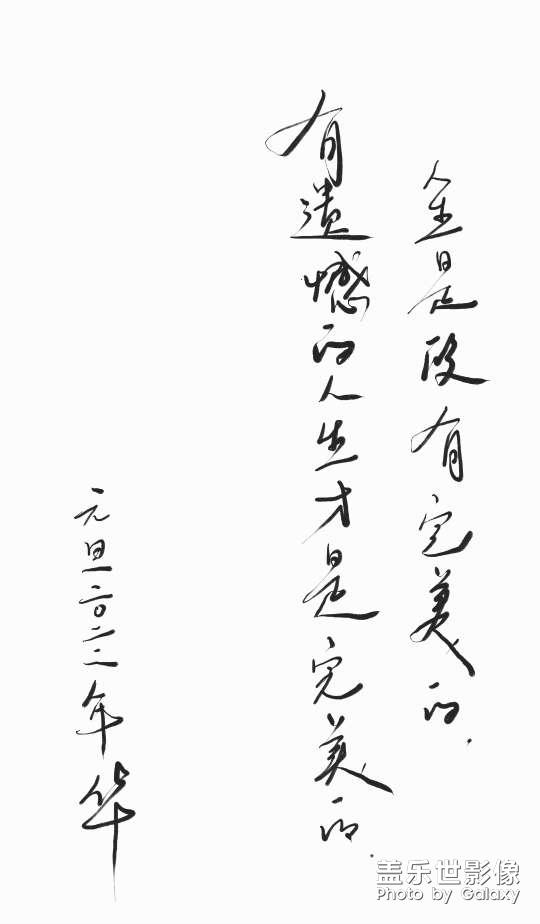 人生是没有完美的.
有遗憾的人生才是完美的.
元旦二〇二二年华
盖乐世影像
Photo by Galaxy